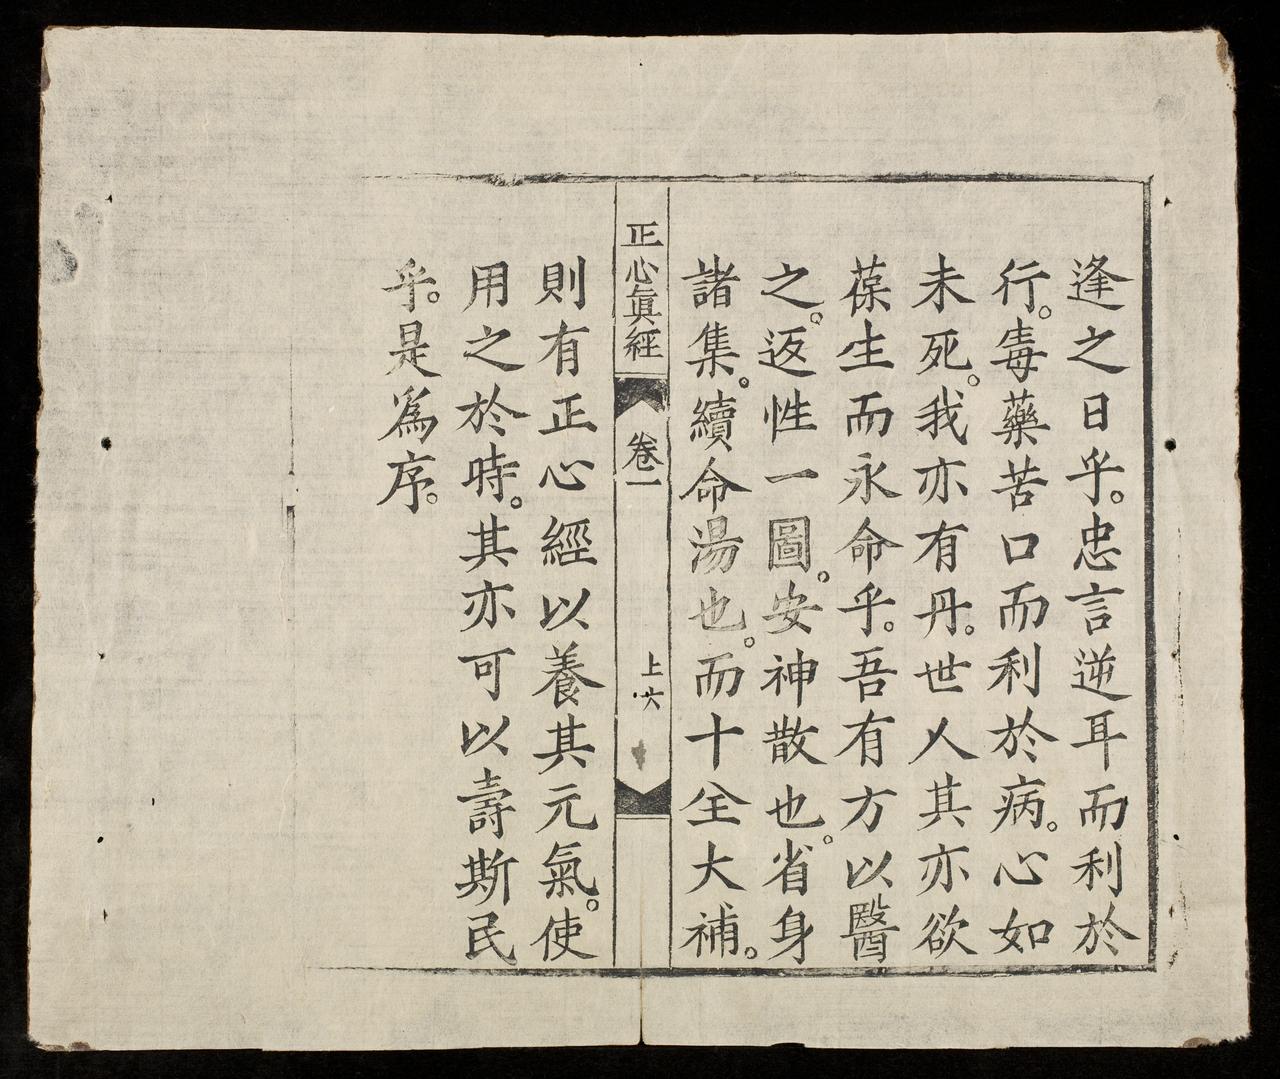 逢之日乎。忠言逆耳而利於
行。毒藥苦口而利於病。心如
未死。我亦有丹。世人其亦欲
葆生而永命乎。吾有方以醫
之。返性一圖。安神散也。省身
諸集。續命湯也。而十全大補。
正心眞經
卷一
上六
則有正心經以養其元氣。使
用之於時。其亦可以壽斯民
乎。是爲序。